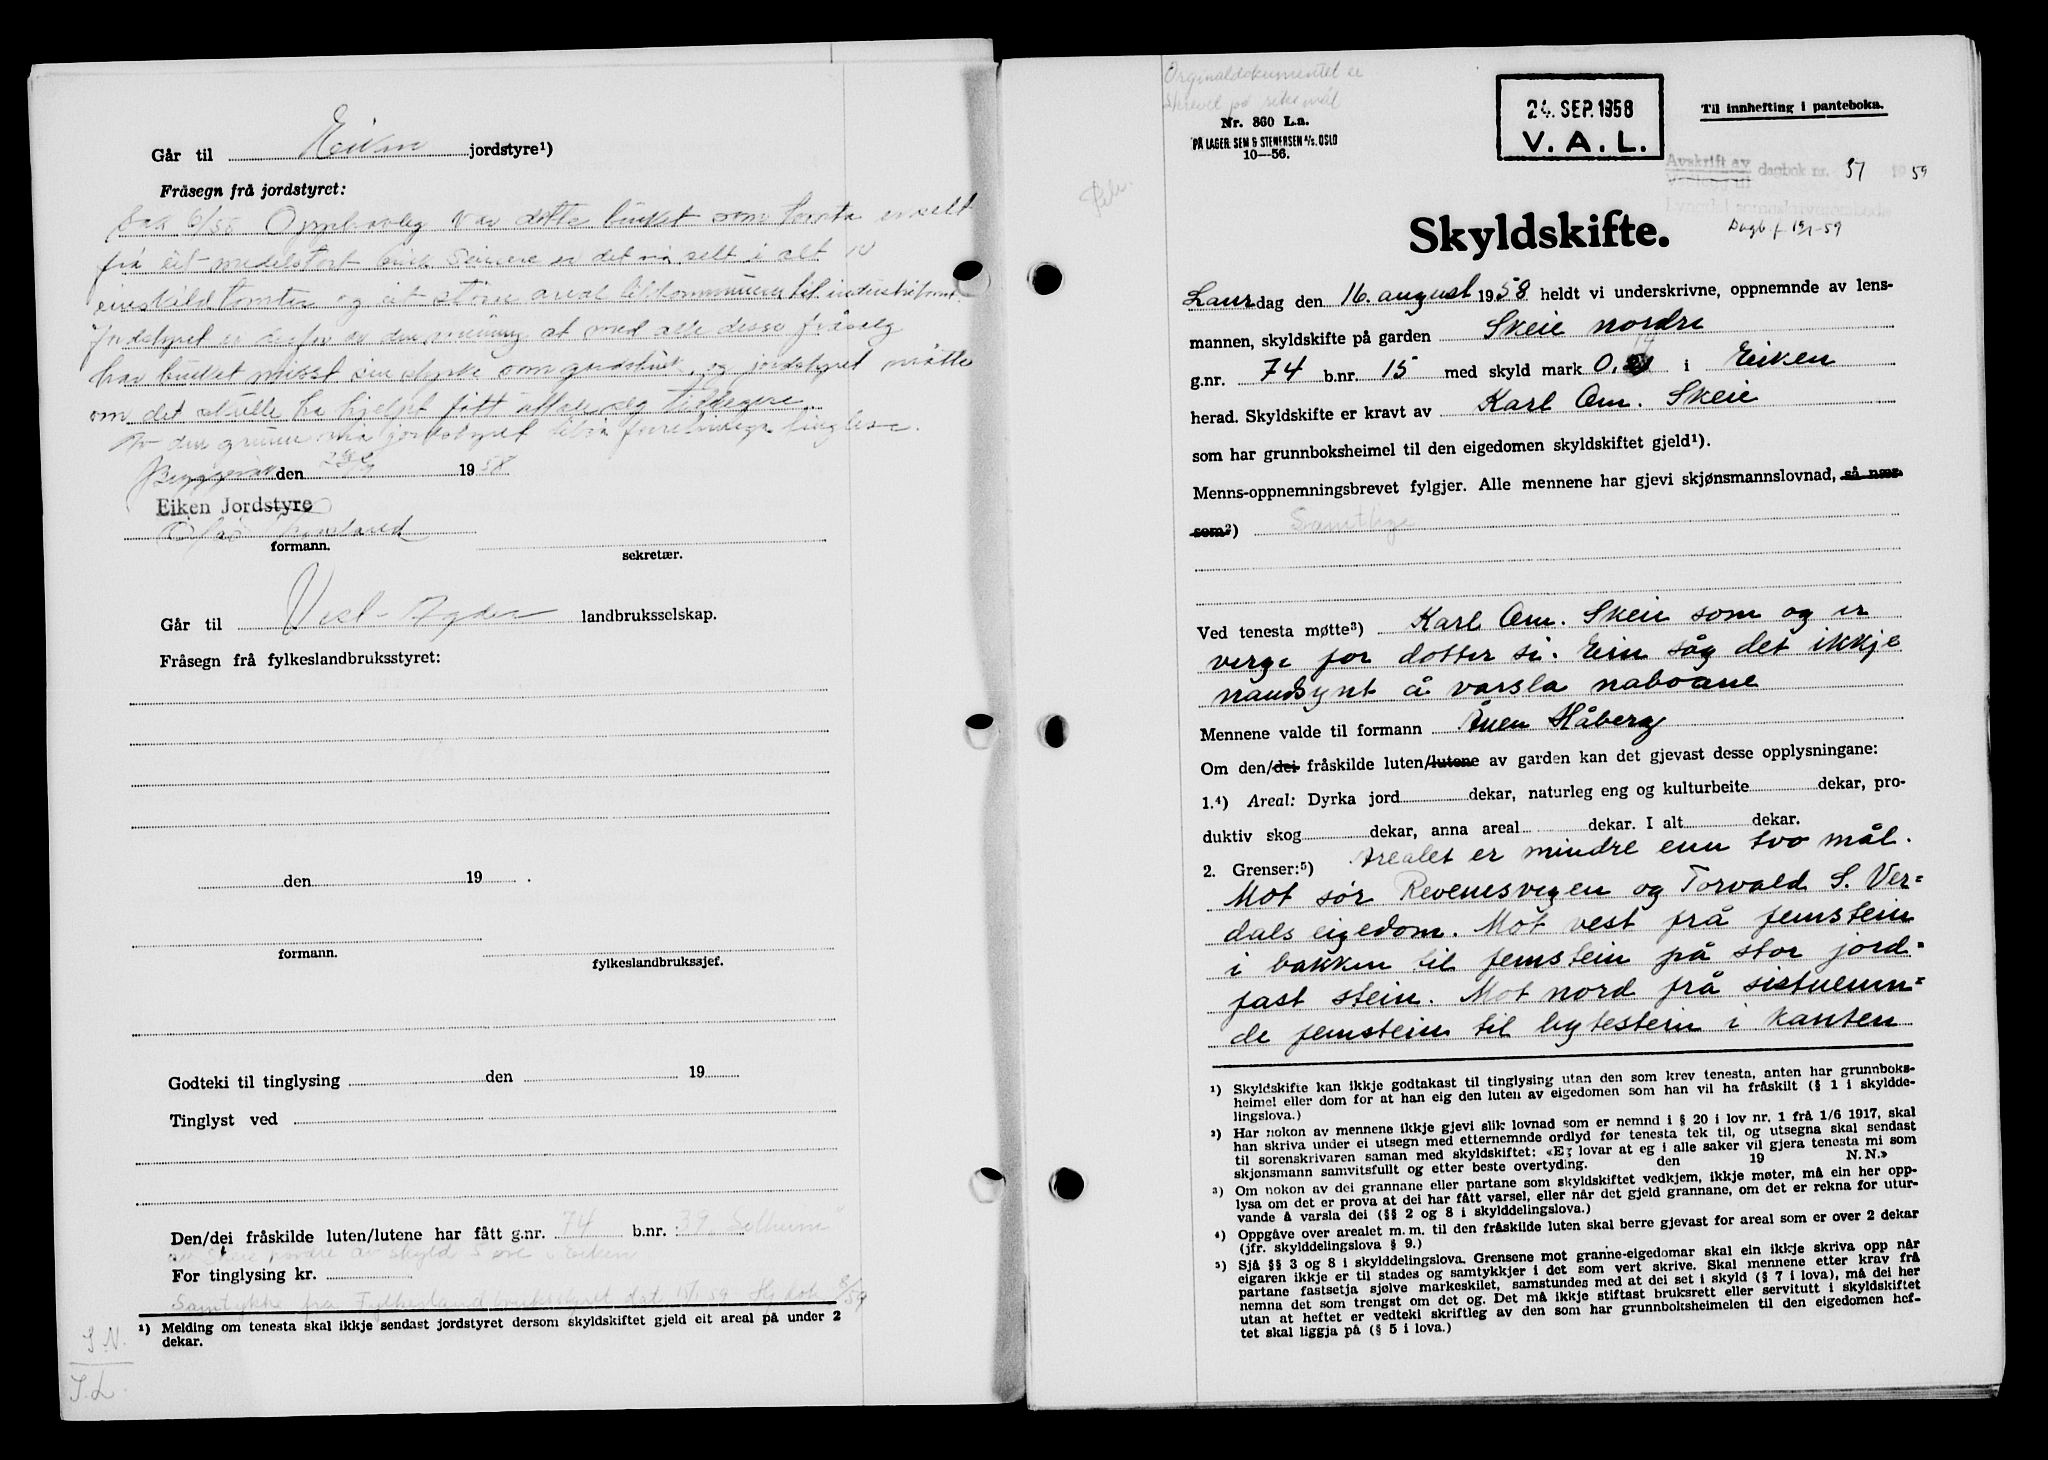 Går til Eiken jordstyre¹)
Fråsegn frå jordstyret:
Sak 6/58 Opphavleg var dette bruket som tomta er selt
frå eit medelstort bruk Seinere er det nå selt i alt 10
einskild tomter og eit større areal til kommunen til industriformål.
Jordstyret er derfor av den meining at med alle desse fråsalg
har bruket misst sin styrke som gardsbruk, og jordstyret måtte
om det skulle ha hjelpt fått uttale seg tidlegere.
Av den grunn må jordstyret tilrå forretninga tinglese.
den 19 58
Eiken Jordstyre
formann. sekretær.
Går til Vest-Agder landbruksselskap.
Fråsegn frå fylkeslandbruksstyret:
den 19 .
formann. fylkeslandbrukssjef.
Godteki til tinglysing den 19
Tinglyst ved
Den/dei fråskilde luten/lutene har fått g.nr. 74 b.nr. 39 "Solheim"
av Skeie nordre av skyld 5 øre i Eiken
For tinglysing kr.
Samtykke fra Fylkeslandbruksstyret dat 15/1 59 Hj dok 8/59
¹) Melding om tenesta skal ikkje sendast jordstyret dersom skyldskiftet gjeld eit areal på under 2
dekar.
S.N.
T.L.
Orginaldokumentet er
skrevet på
Nr. 360 L.a.
PÅ LAGER: SEM & STENERSEN A/S, OSLO
10—56.
24. SEP. 1958
V. A. L.
Til innhefting i panteboka.
Avskrift av dagbok nr. 37 1959
Dagb.f. 19/1-59
Skyldskifte.
Laurdag den 16. august 1958 heldt vi underskrivne, oppnemnde av lens-
mannen, skyldskifte på garden Skeie nordre
g.nr. 74 b.nr. 15 med skyld mark 0, i Eiken
herad. Skyldskifte er kravt av Karl Om. Skeie
som har grunnboksheimel til den eigedomen skyldskiftet gjeld¹).
Menns-oppnemningsbrevet fylgjer. Alle mennene har gjevi skjønsmannslovnad, så nær
som²) Samtlige
Ved tenesta møtte³) Karl Om. Skeie som og er
verge for dotter si. Ein såg det ikkje
naudsynt å varsla naboane
Mennene valde til formann Ånen Håberg
Om den/dei fråskilde luten/lutene av garden kan det gjevast desse opplysningane:
1.⁴) Areal: Dyrka jord dekar, naturleg eng og kulturbeite dekar, pro-
duktiv skog dekar, anna areal dekar. I alt dekar.
2. Grenser:⁵) Arealet er mindre enn tvo mål.
Mot sør Revenesvegen og Torvald S. Ver=
dals eigedom. Mot vest frå femstein
i bakken til femstein på stor jord=
fast stein. Mot nord frå sistnemn=
de femstein til bytestein i kanten
¹) Skyldskifte kan ikkje godtakast til tinglysing utan den som krev tenesta, anten har grunnboks-
heimel eller dom for at han eig den luten av eigedomen som han vil ha fråskilt (§ 1 i skyldde-
lingslova.)
²) Har nokon av mennene ikkje gjevi slik lovnad som er nemnd i § 20 i lov nr. 1 frå 1/6 1917, skal
han skriva under ei utsegn med etternemnde ordlyd før tenesta tek til, og utsegna skal sendast
til sorenskrivaren saman med skyldskiftet: «Eg lovar at eg i alle saker vil gjera tenesta mi som
skjønsmann samvitsfullt og etter beste overtyding. den 19 N. N.»
³) Om nokon av dei grannane eller partane som skyldskiftet vedkjem, ikkje møter, må ein her opp-
lysa om det er prova at dei har fått varsel, eller når det gjeld grannane, om det er rekna for utur-
vande å varsla dei (§§ 2 og 8 i skylddelingslova.)
⁴) Oppgåve over arealet m. m. til den fråskilde luten skal berre gjevast for areal som er over 2 dekar
(jfr. skylddelingslova § 9.)
⁵) Sjå §§ 3 og 8 i skylddelingslova. Grensene mot granne-eigedomar skal ein ikkje skriva opp når
eigaren ikkje er til stades og samtykkjer i det som vert skrive. Skal mennene etter krav frå
partane fastsetja sjølve markeskilet, samstundes med at dei set i skyld (§ 7 i lova), må dei her
nemna det som trengst om det og. Det må ikkje stiftast bruksrett eller servitutt i skyldskiftet
utan at heftet er vedteki skriftleg av den som har grunnboksheimelen til den eigedomen hef-
tet skal liggja på (§ 5 i lova.)